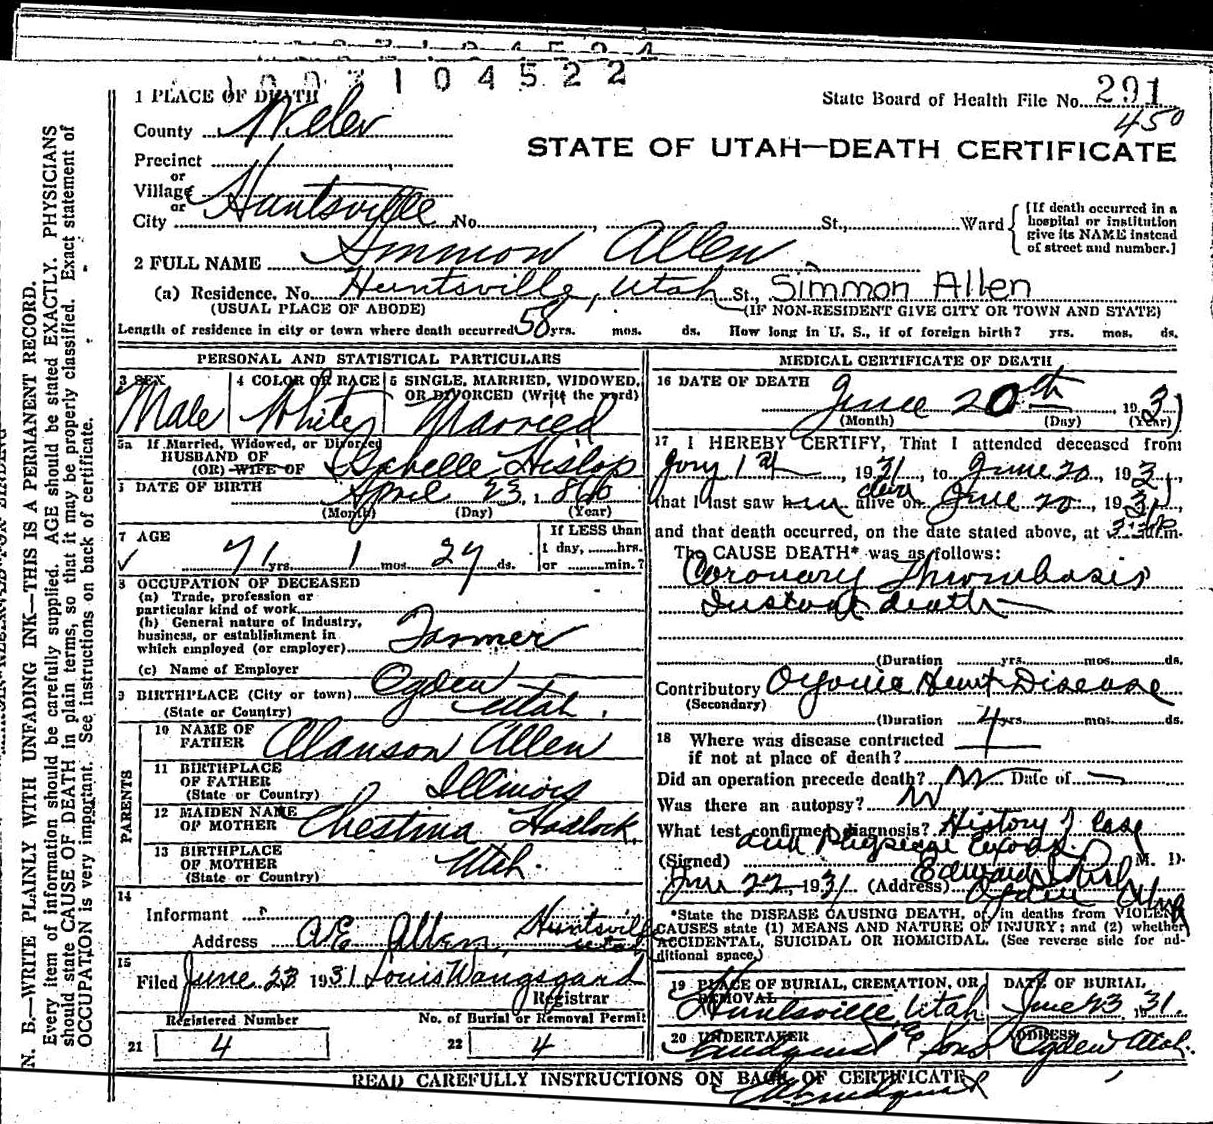 1003104522
1 PLACE OF DEATH
State Board of Health File No. 291
450
County Weber
STATE OF UTAH—DEATH CERTIFICATE
Precinct
or
Village
or
City Huntsville No. St., Ward
[If death occurred in a hospital or institution give its NAME instead of street and number.]
2 FULL NAME Simmon Allen
(a) Residence. No. Huntsville, Utah St., Simmon Allen
(USUAL PLACE OF ABODE) (IF NON-RESIDENT GIVE CITY OR TOWN AND STATE)
Length of residence in city or town where death occurred 58 yrs. mos. ds. How long in U. S., if of foreign birth? yrs. mos. ds.
PERSONAL AND STATISTICAL PARTICULARS
3 SEX 4 COLOR OR RACE 5 SINGLE, MARRIED, WIDOWED, OR DIVORCED (Write the word)
Male White Married
5a If Married, Widowed, or Divorced
HUSBAND OF
(OR) WIFE OF Isabelle Hislop
DATE OF BIRTH April 23, 1860
(Month) (Day) (Year)
7 AGE 71 yrs. 1 mos. 27 ds.
If LESS than
1 day, hrs.
or min.?
8 OCCUPATION OF DECEASED
(a) Trade, profession or
particular kind of work
(b) General nature of industry,
business, or establishment in
which employed (or employer) Farmer
(c) Name of Employer
9 BIRTHPLACE (City or town) Ogden
(State or Country) Utah.
PARENTS
10 NAME OF
FATHER Alanson Allen
11 BIRTHPLACE
OF FATHER
(State or Country) Illinois
12 MAIDEN NAME
OF MOTHER Chestina Hadlock
13 BIRTHPLACE
OF MOTHER
(State or Country) Utah.
14
Informant
Address A.E. Allen Huntsville Utah
15
Filed June 23 1931 Louis Wangsgard
Registrar
Registered Number No. of Burial or Removal Permit
21 4 22 4
MEDICAL CERTIFICATE OF DEATH
16 DATE OF DEATH
June 20th, 1931
(Month) (Day) (Year)
17 I HEREBY CERTIFY, That I attended deceased from
1st, 1931, to June 20, 1931,
that I last saw him alive on June 20, 1931
and that death occurred, on the date stated above, at m.
The CAUSE DEATH* was as follows:
Coronary Thrombosis
Instant death
(Duration yrs. mos. ds.
Contributory Organic Heart Disease
(Secondary)
(Duration 4 yrs. mos. ds.
18 Where was disease contracted
if not at place of death?
Did an operation precede death? No Date of
Was there an autopsy? No
What test confirmed diagnosis? History of Case
and Physical Exam.
(Signed) Edward M. D.
June 22, 1931 (Address) Ogden Utah
*State the DISEASE CAUSING DEATH, or, in deaths from VIOLENT
CAUSES state (1) MEANS AND NATURE OF INJURY; and (2) whether
ACCIDENTAL, SUICIDAL OR HOMICIDAL. (See reverse side for additional space.)
19 PLACE OF BURIAL, CREMATION, OR REMOVAL DATE OF BURIAL
Huntsville Utah June 23, 1931.
20 UNDERTAKER ADDRESS
Lindquist & Sons Ogden Utah.
READ CAREFULLY INSTRUCTIONS ON BACK OF CERTIFICATE
N. B.—WRITE PLAINLY WITH UNFADING INK—THIS IS A PERMANENT RECORD.
Every item of information should be carefully supplied. AGE should be stated EXACTLY. PHYSICIANS
should state CAUSE OF DEATH in plain terms, so that it may be properly classified. Exact statement of
OCCUPATION is very important. See instructions on back of certificate.